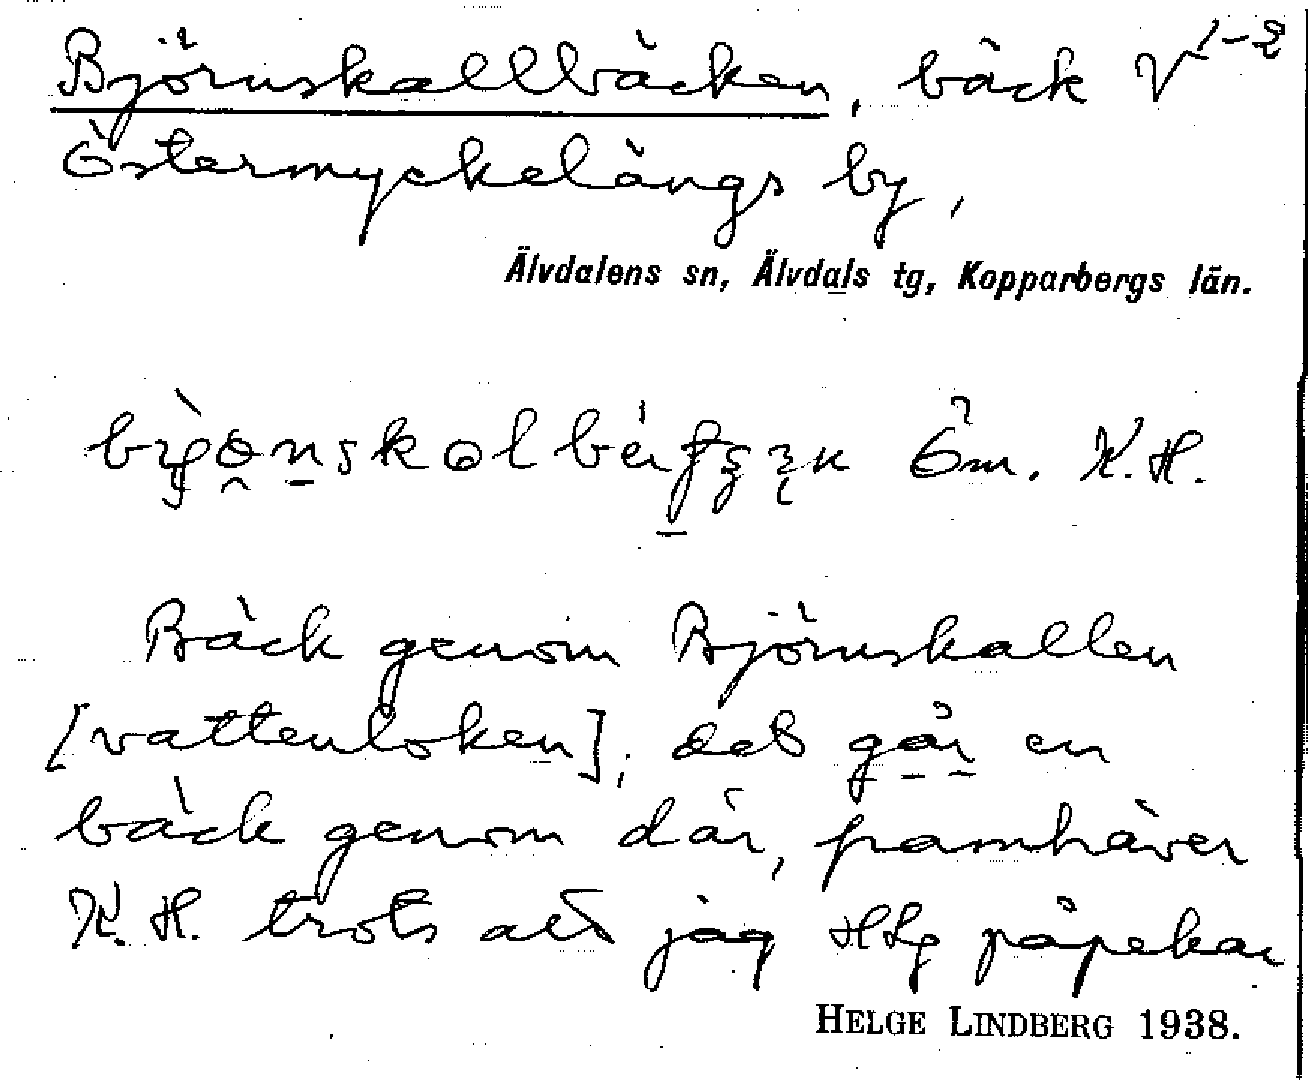 Björnskallbäcken, bäck V 1-2
Östermyckelängs by,
Älvdalens sn, Älvdals tg, Kopparbergs län.
Öm. K.H.
Bäck genom Björnskallen
[vattenloken]; det går en
bäck genom där, framhäver
K.H. trots att jag HLg påpekar
HELGE LINDBERG 1938.